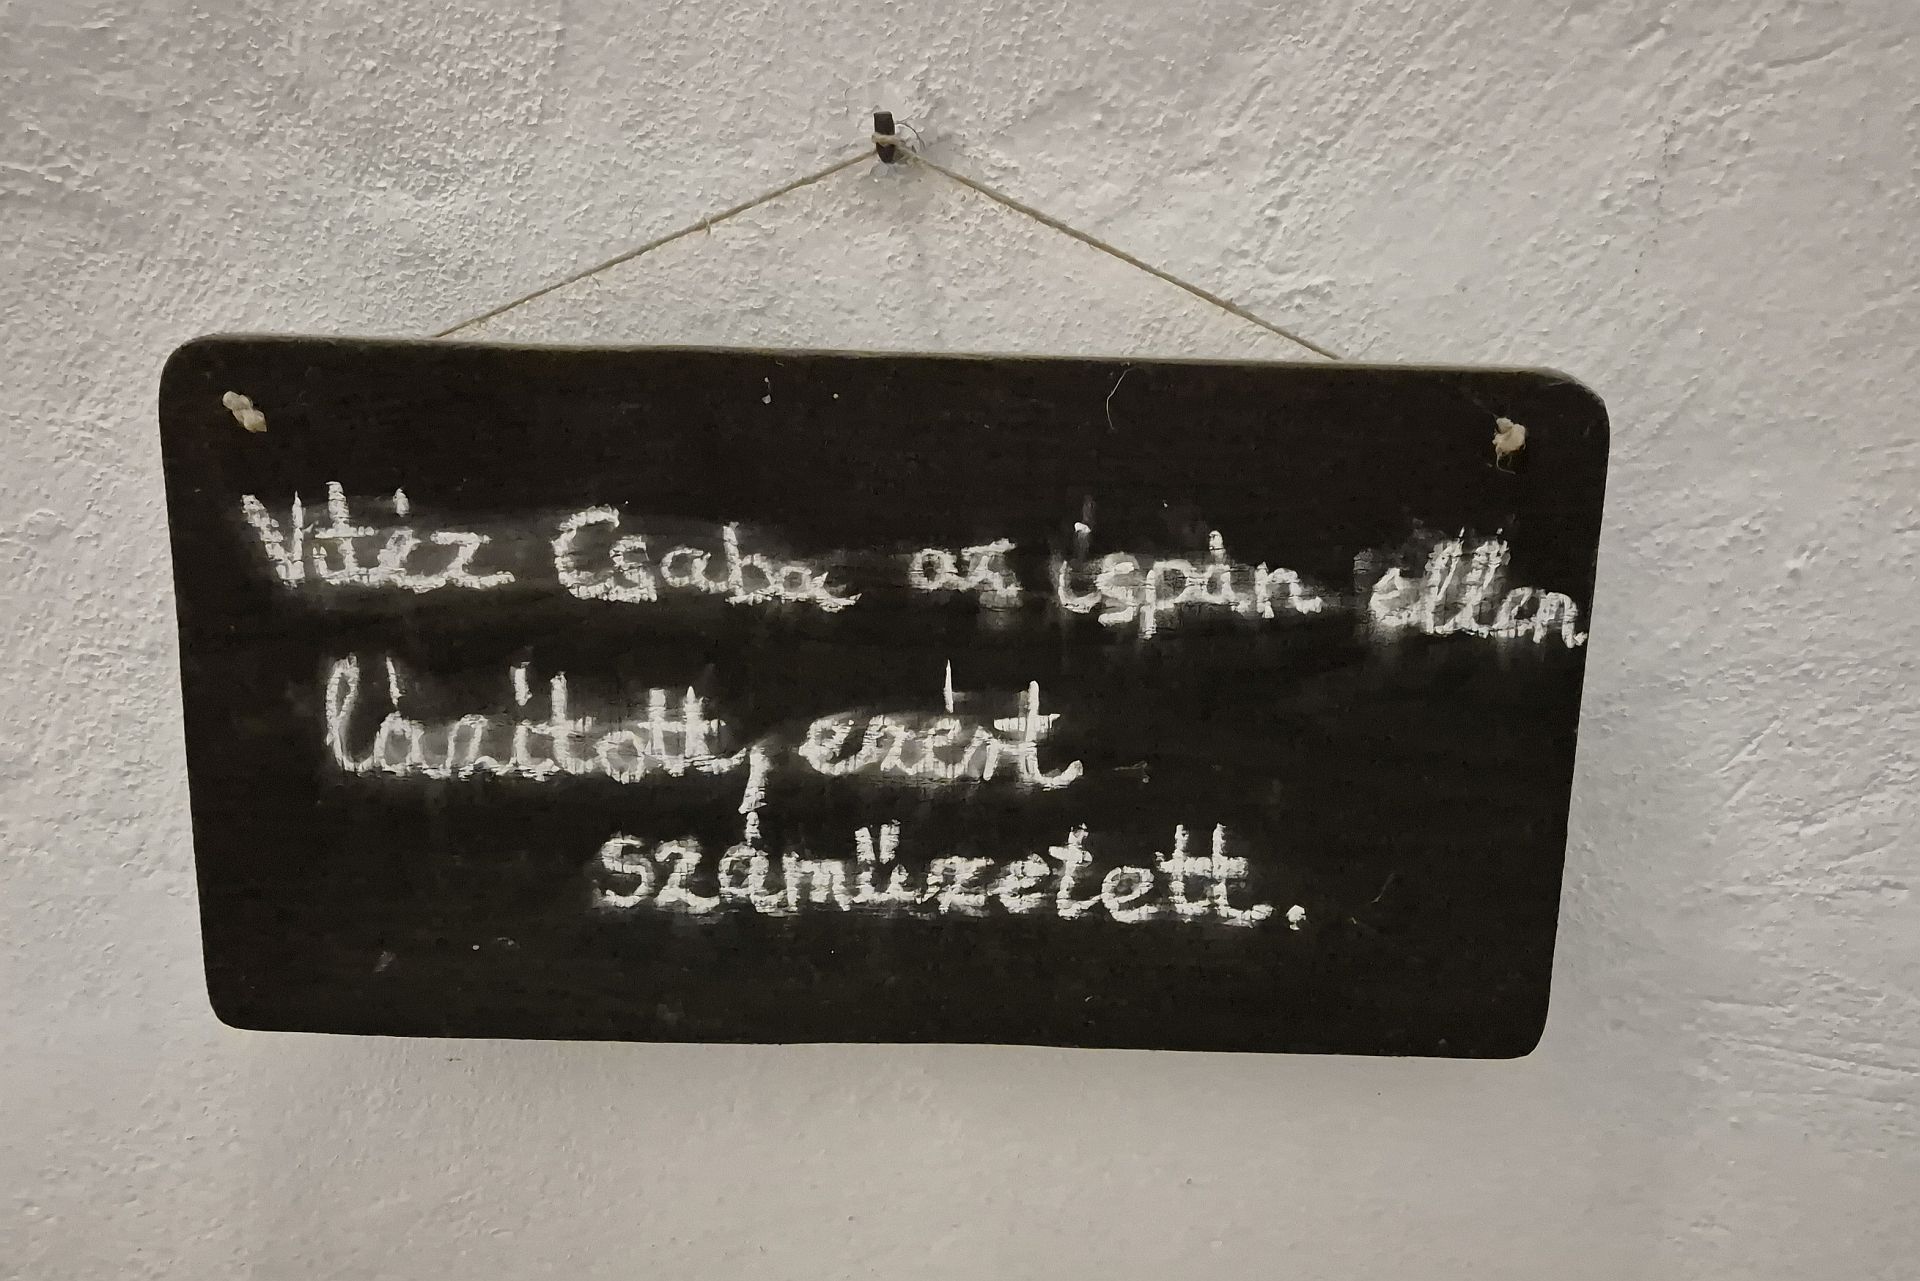 Vitéz Csaba az ispán ellen
lázított, ezért
száműzetett.